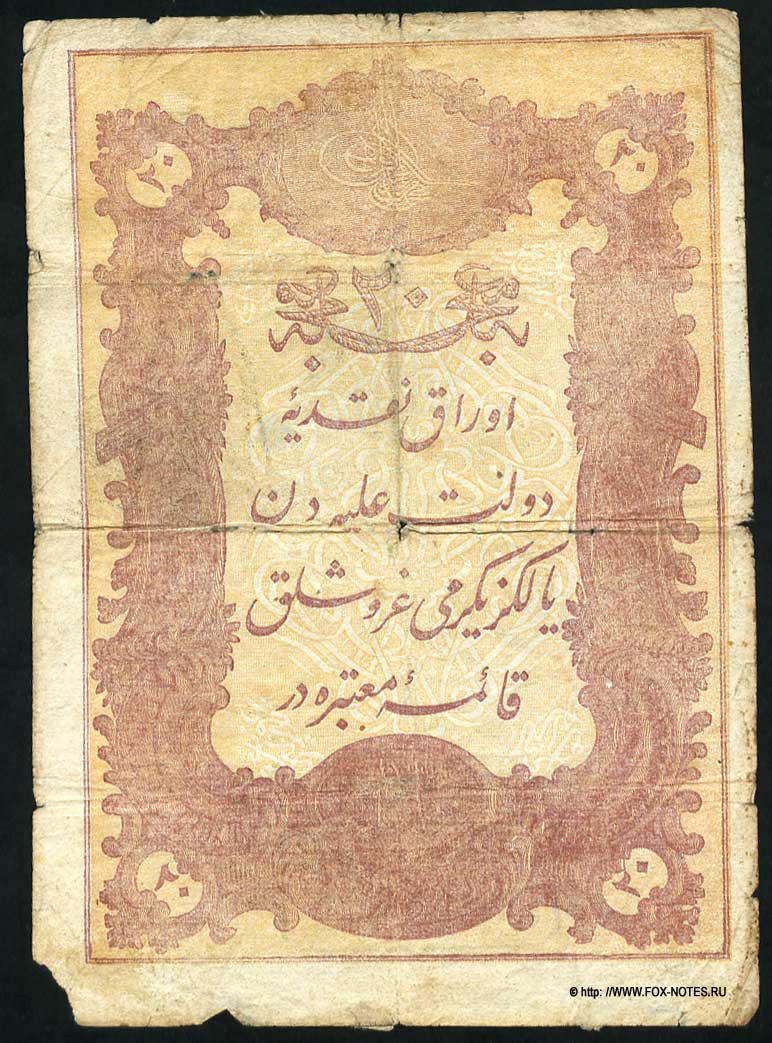 ٢٠ ٢٠
٢٠
اوراق نقدیهٔ
دولت علیه دن
یالکز یکرمی غروشلق
قائمهٔ معتبره در
٢٠ ٢٠
© http: //WWW.FOX-NOTES.РУ